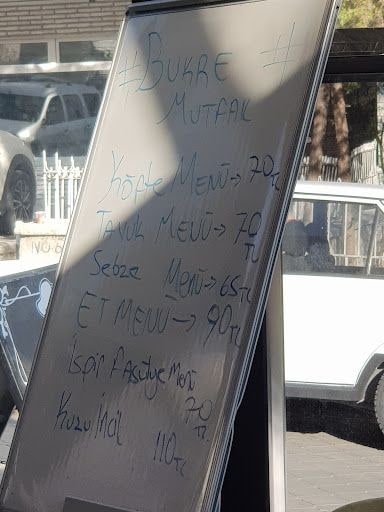 # BUKRE #
MUTFAK
Köfte MENÜ → 70 TL
TAVUK MENÜ → 70 TL
Sebze Menü → 65 TL
ET MENÜ → 90 TL
İspir FASülye Menü 70 TL
Kuzu İncik 110 TL